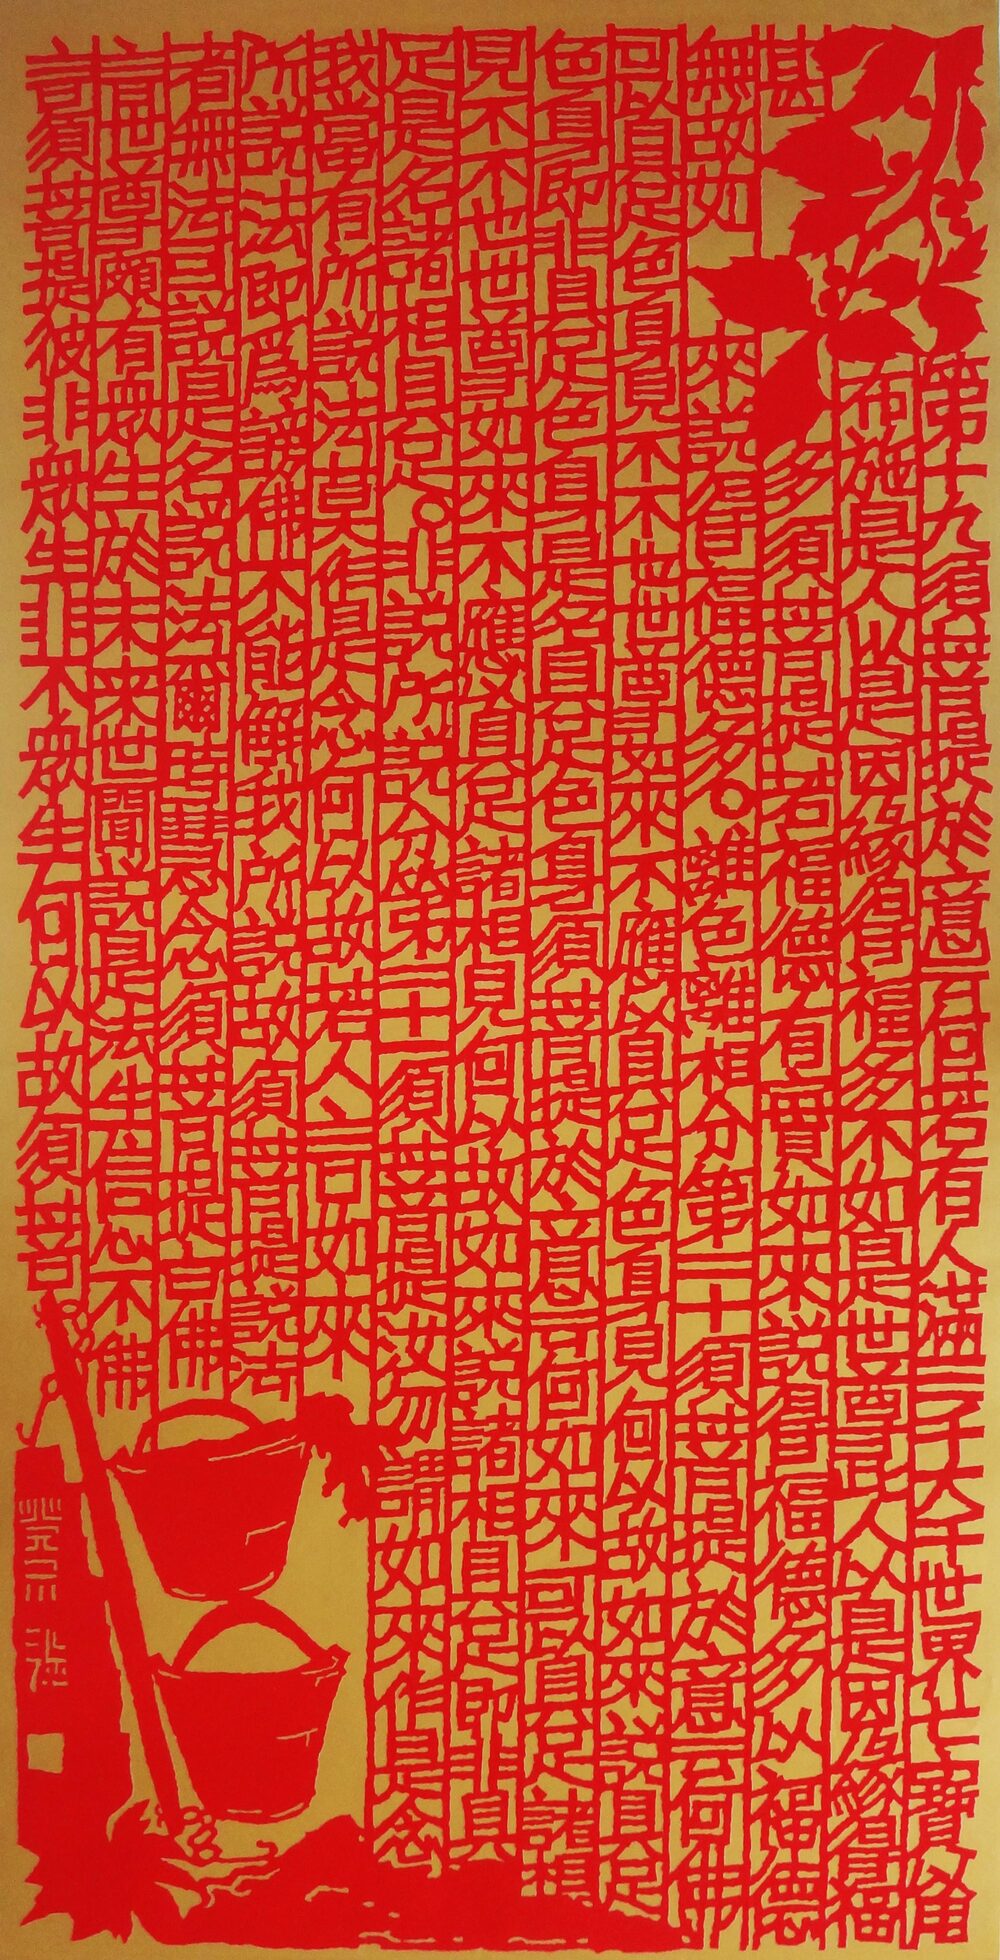 第十九須菩提於意云何若有人滿三千大千世界七寶以用
布施是人以是因緣得福多不如是世尊此人以是因緣得福
甚多須菩提若福德有實如來說得福德多以福德
無故如來說得福德多。離色離相分第二十須菩提於意云何佛
可以具足色身見不不也世尊如來不應以具足色身見何以故如來說具足
色身即非具足色身是名具足色身須菩提於意云何如來可以具足諸相
見不不也世尊如來不應以具足諸相見何以故如來說諸相具足即非具
足是名諸相具足。非說所說分第二十一須菩提汝勿謂如來作是念
我當有所說法莫作是念何以故若人言如來
所說法即爲謗佛不能解我所說故須菩提說法
者無法可說是名說法爾時慧命須菩提白佛
言世尊頗有衆生於未来世聞說是法生信心不佛
言須菩提彼非衆生非不衆生何以故須菩